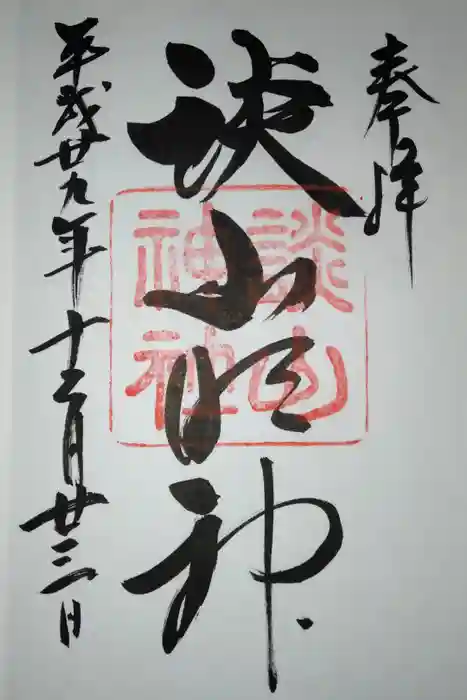 奉拝
談山明神
談山神社
平成廿九年十二月廿三日